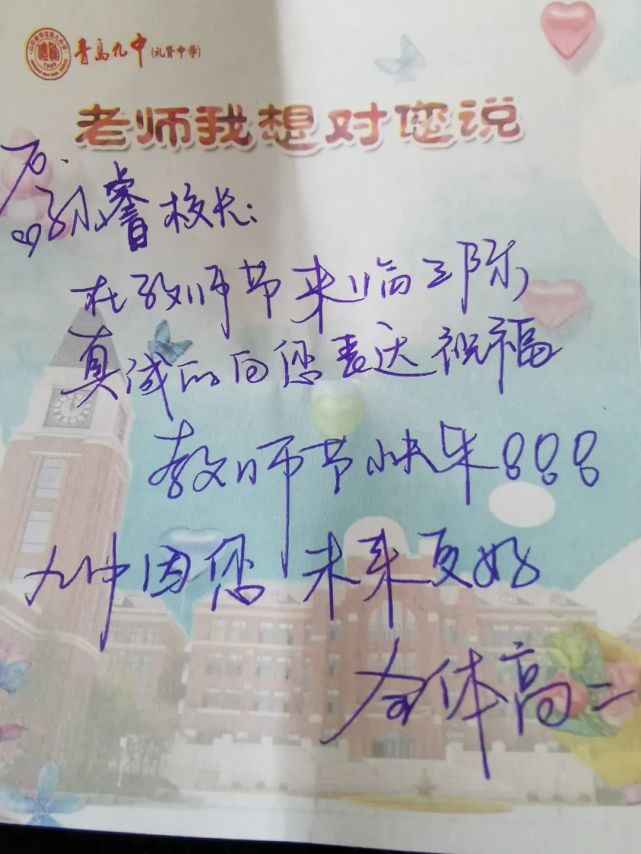 青岛九中(礼贤中学)
老师我想对您说
孙睿校长:
在教师节来临之际,
真诚的向您表达祝福
教师节快乐!!!
九中因您 未来更好
全体高二